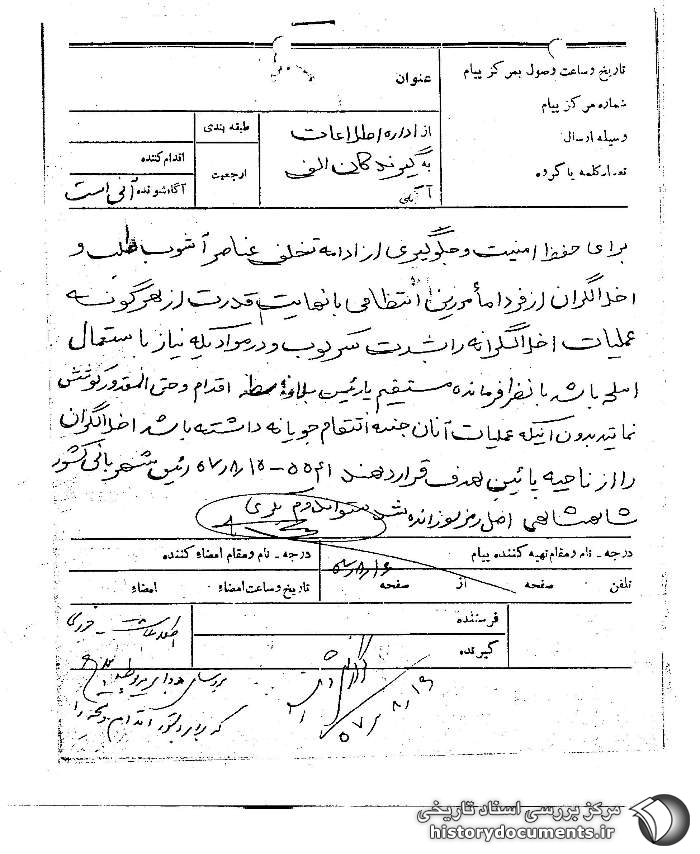 تاریخ و ساعت وصول بمرکز پیام
شماره مرکز پیام
وسیله ارسال
تعداد کلمه یا گروه
عنوان
از اداره اطلاعات
به گیرندگان الف
طبقه بندی
ارجعیت
اقدام کننده
آگاه شونده آنی است
برای حفظ امنیت و جلوگیری از ادامه تخلف عناصر آشوب طلب و
اخلالگران از فردا مأمورین انتظامی با نهایت قدرت از هر گونه
عملیات اخلالگرانه را بشدت سرکوب و در مواردیکه نیاز باستعمال
اسلحه باشد با نظر فرمانده مستقیم یا رئیس اقدام و حتی المقدور کوشش
نمایند بدون اینکه عملیات آنان جنبه انتقام جویانه داشته باشد اخلالگران
را از ناحیه پائین هدف قرار دهند ۵۵۴۱-۵۷/۸/۱۵ رئیس شهربانی کشور
شاهنشاهی اصل رمز سوزانده شد ستوان یکم
درجه - نام و مقام تهیه کننده پیام
درجه - نام و مقام امضاء کننده
۵۷/۸/۱۶
تلفن صفحه از صفحه
تاریخ و ساعت امضاء امضاء
فرستنده
گیرنده
اطلاعات
۵۷/۸/۱۶
مرکز بررسی اسناد تاریخی
historydocuments.ir